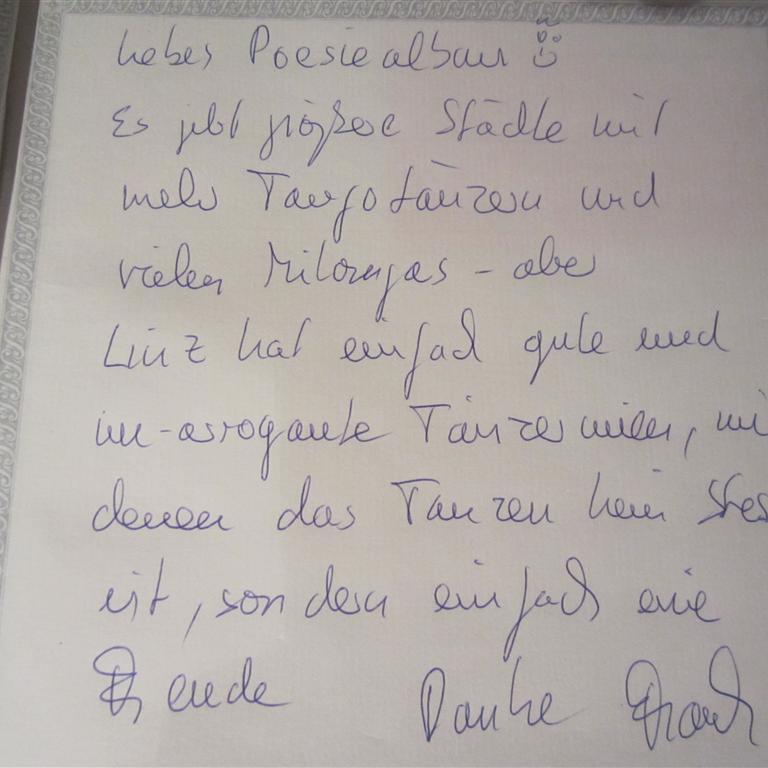 Liebes Poesiealbum
Es gibt größere Städte mit
mehr Tangotänzern und
vielen Milongas – aber
Linz hat einfach gute und
un-arrogante Tänzerinnen, mi
denen das Tanzen kein Stres
ist, sondern einfach eine
Freude Danke